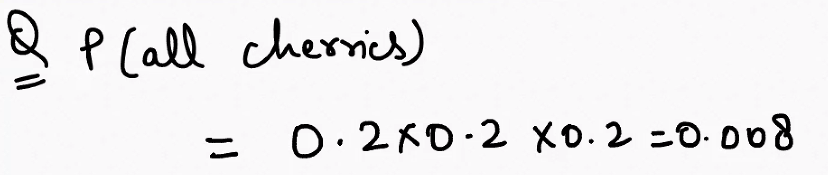 Q P(all cherries)
= 0.2×0.2 ×0.2 =0.008